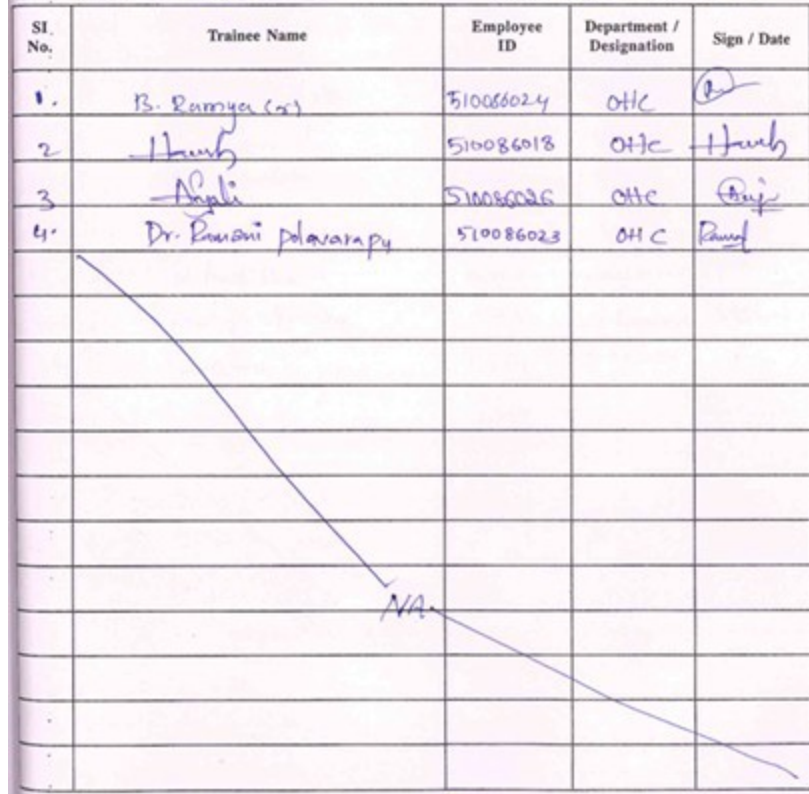 SI. No. Trainee Name Employee ID Department / Designation Sign / Date
1. B. Ramya 510086024 OHC
2 Harsh 510086018 OHC Harsh
3 Anjali 510086026 OHC
4. Dr. Ramani polavarapu 510086023 OHC
NA.